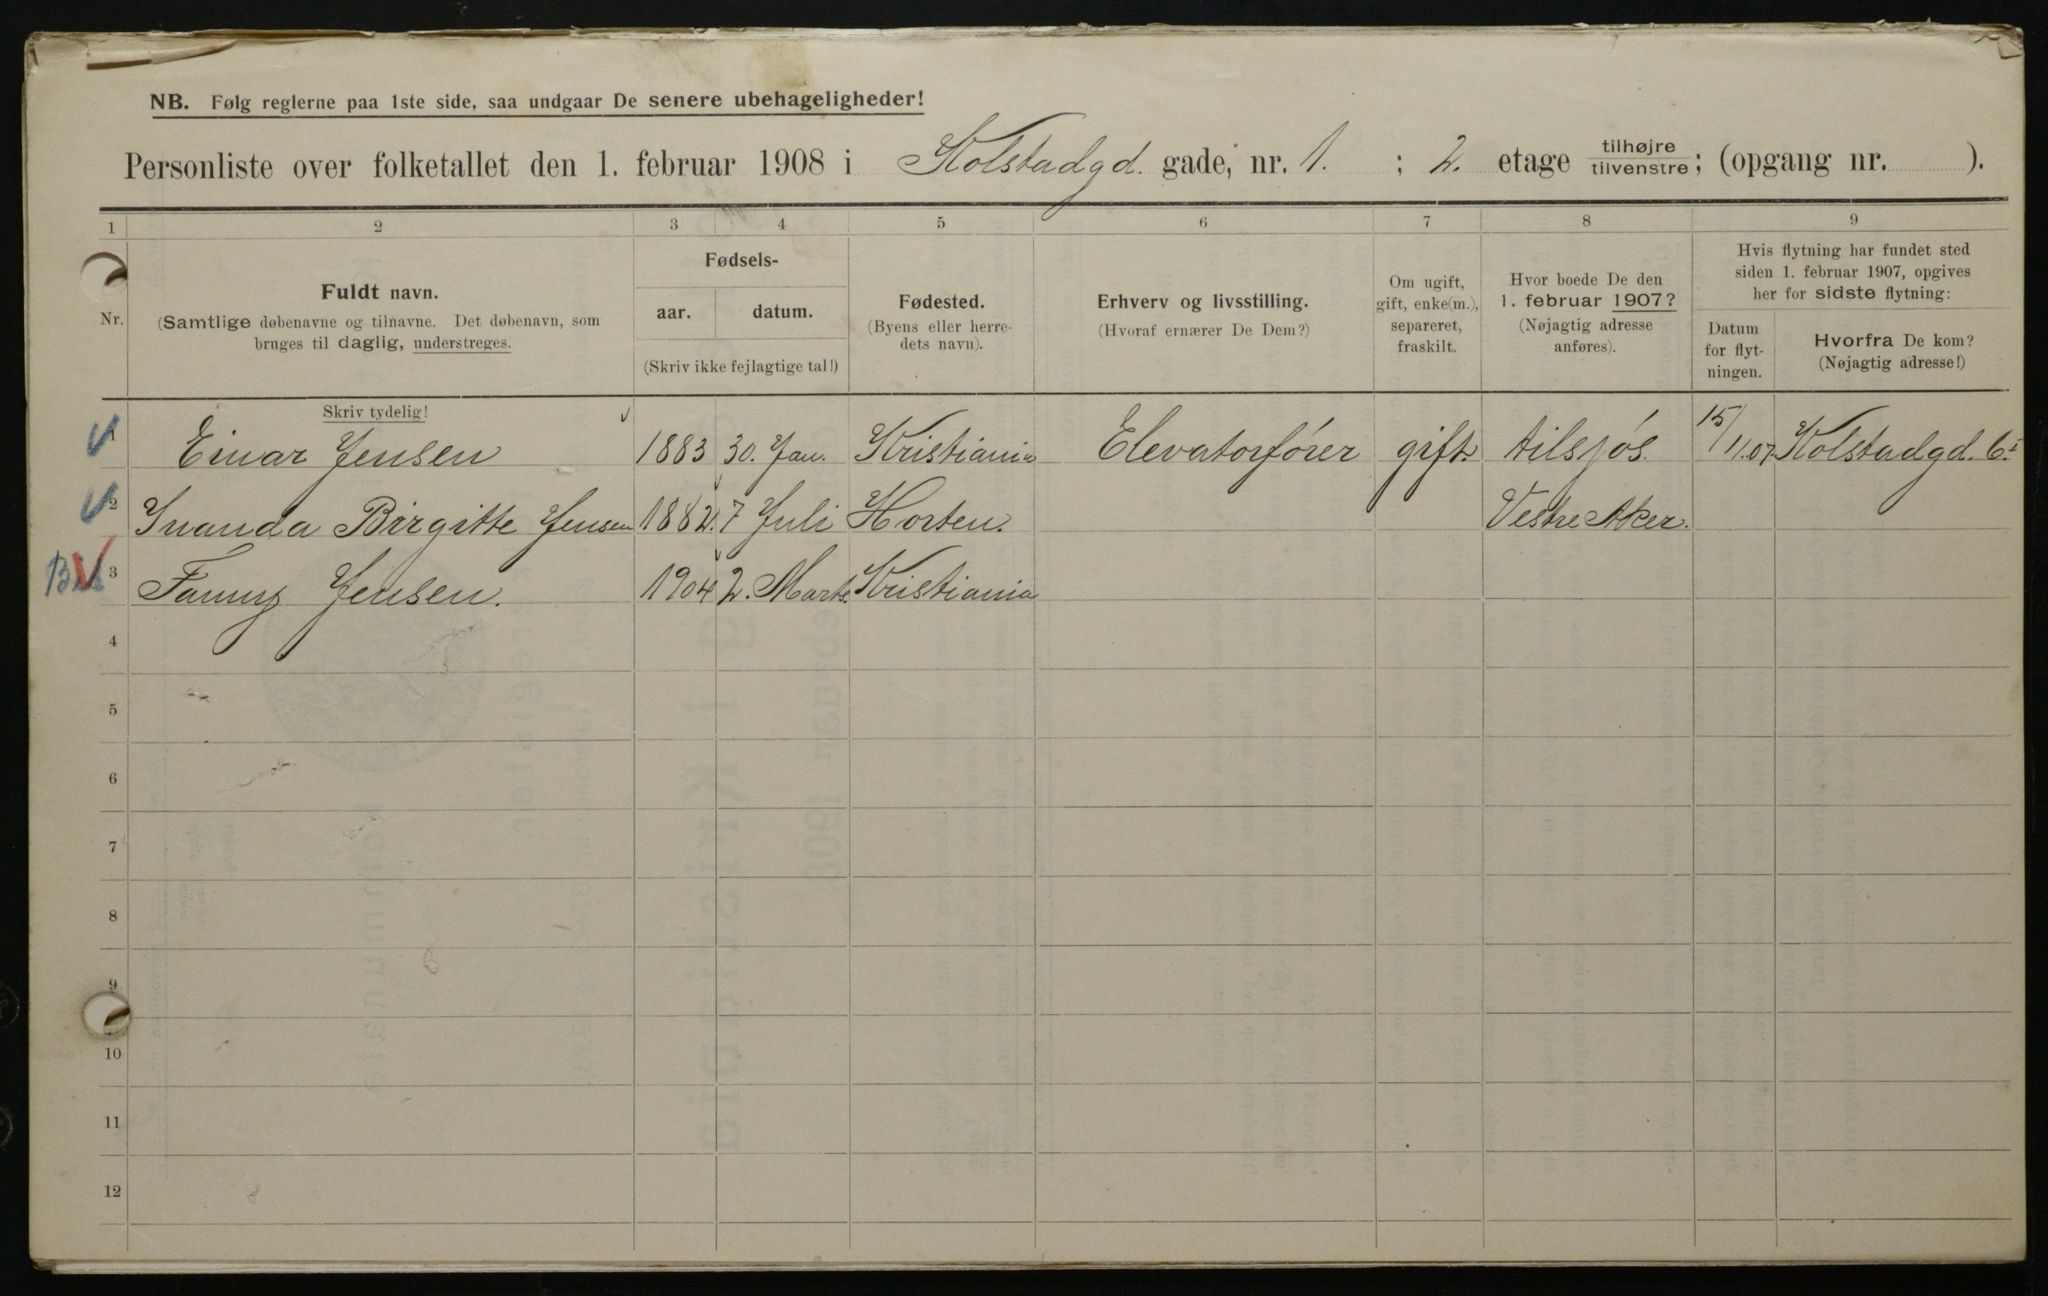 NB. Følg reglerne paa 1ste side, saa undgaar De senere ubehageligheder!
Personliste over folketallet den 1. februar 1908 i Kolstadgd. gade, nr. 1. ; 2. etage tilhøjre/tilvenstre; (opgang nr. ).
1 2 3 4 5 6 7 8 9
Nr.
Fuldt navn.
(Samtlige døbenavne og tilnavne. Det døbenavn, som
bruges til daglig, understreges.
Fødsels-
aar. datum.
(Skriv ikke fejlagtige tal!)
Fødested.
(Byens eller herre-
dets navn).
Erhverv og livsstilling.
(Hvoraf ernærer De Dem?)
Om ugift,
gift, enke(m.),
separeret,
fraskilt.
Hvor boede De den
1. februar 1907?
(Nøjagtig adresse
anføres).
Hvis flytning har fundet sted
siden 1. februar 1907, opgives
her for sidste flytning:
Datum
for flyt-
ningen.
Hvorfra De kom?
(Nøjagtig adresse!)
Skriv tydelig!
1 Einar Jensen 1883 30. Jan. Kristiania Elevatorfører gift. 15/11.07 Kolstadgd. 6
2 Birgitte Jensen 1882. 7 Juli Horten. Vestre Aker.
3 Fanny Jensen. 1904 2. Marts. Kristiania
4
5
6
7
8
9
10
11
12